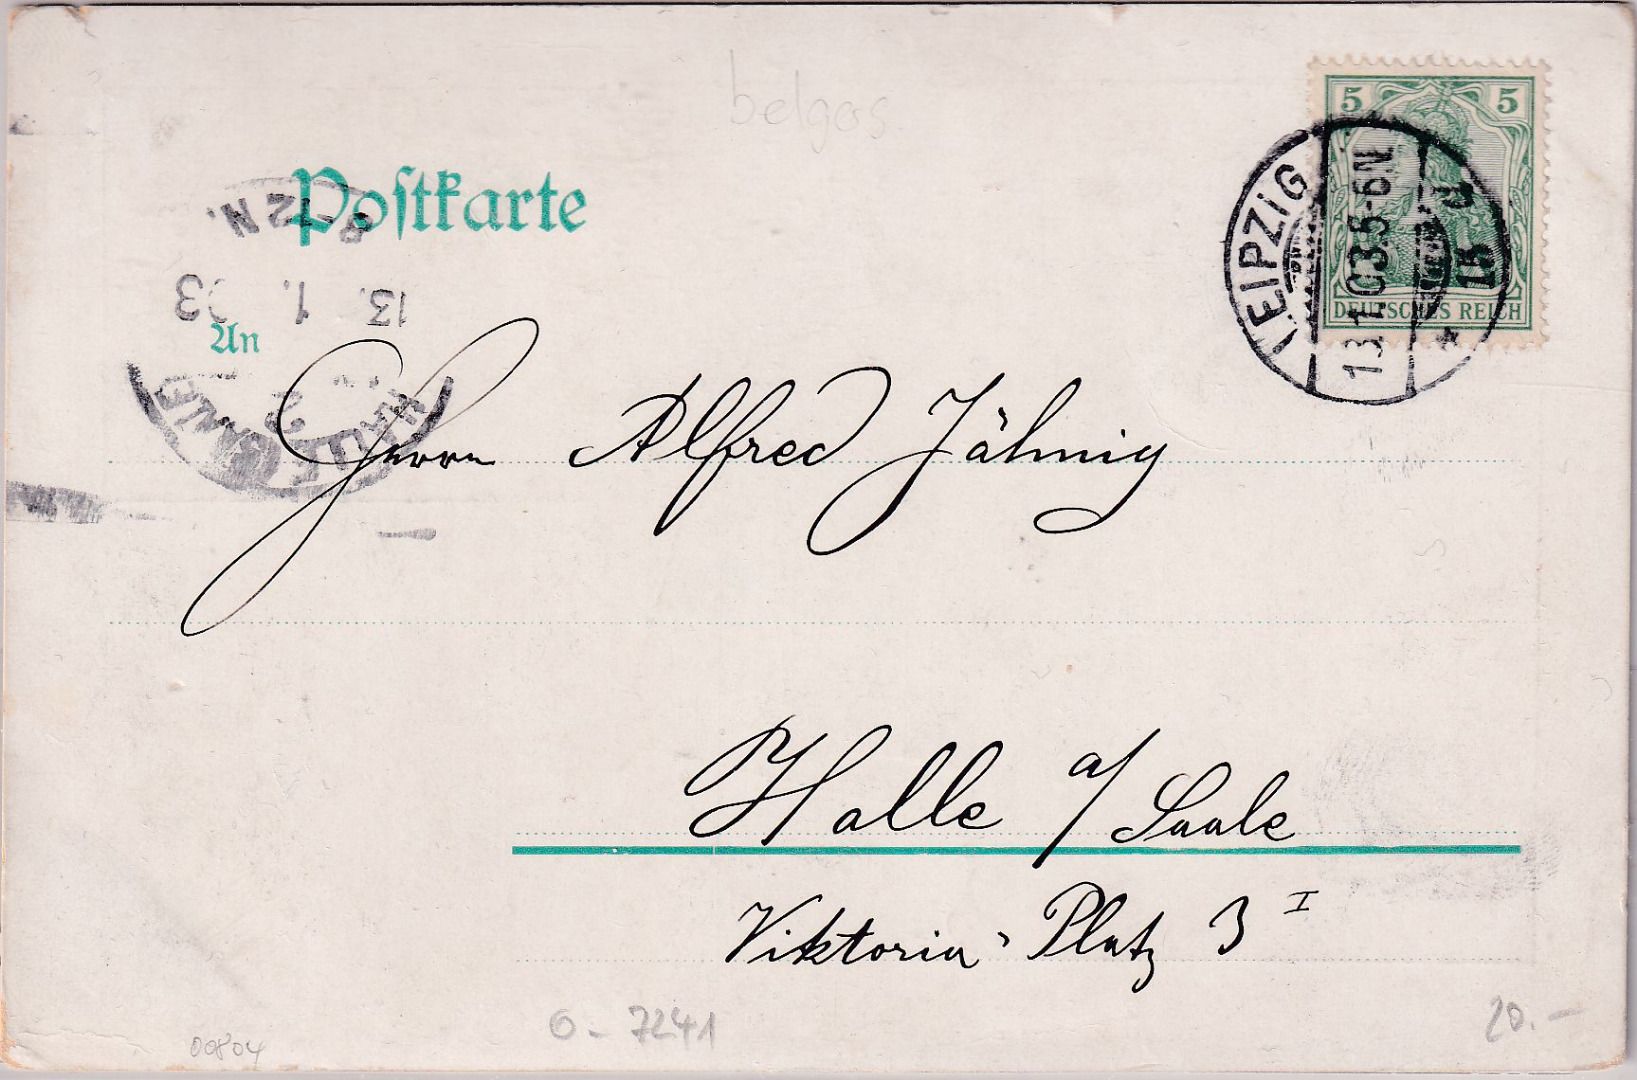 belgas
5 5
DEUTSCHES REICH
LEIPZIG
13.1.03.5-6N.
15
Postkarte
8-12 N.
13. 1. 03
HALLE (SAALE)
An
Herrn Alfred Jähnig
Halle a/ Saale
Viktoria-Platz 3 I
00804
O - 7241
20.-